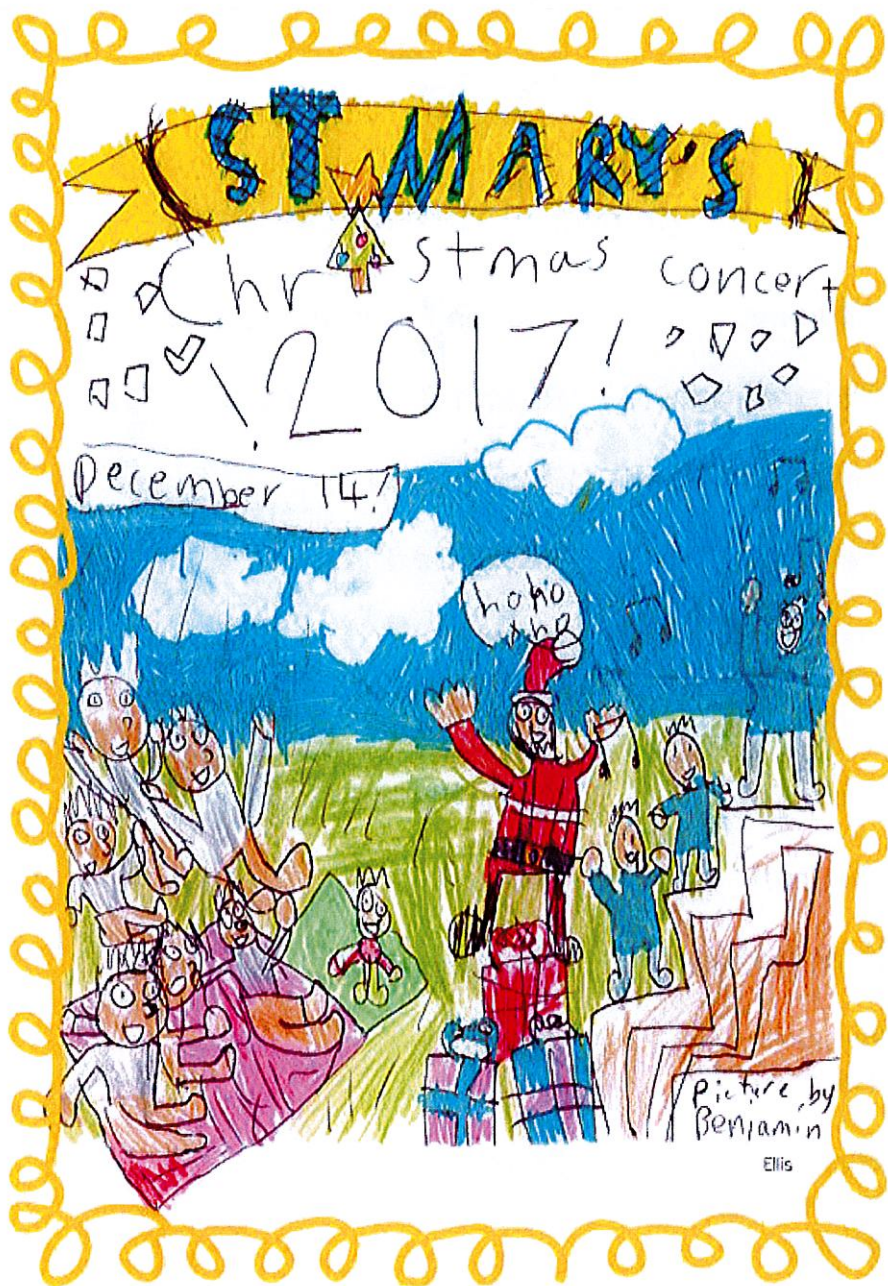 ST MARY'S
Christmas concert
!2017!
December 14!
hoho
ho
picture by
Benjamin
Ellis